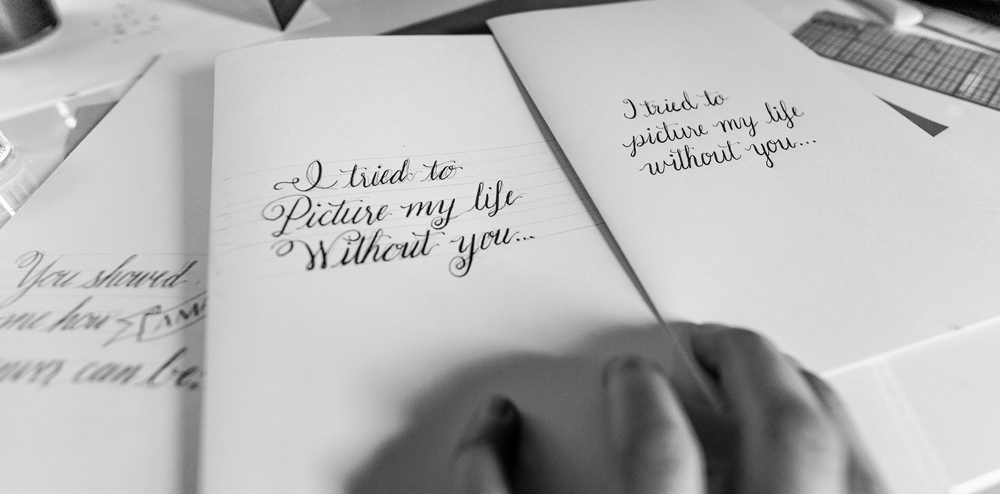 You showed
me how
can be.
I tried to
Picture my life
Without you...
I tried to
picture my life
without you...